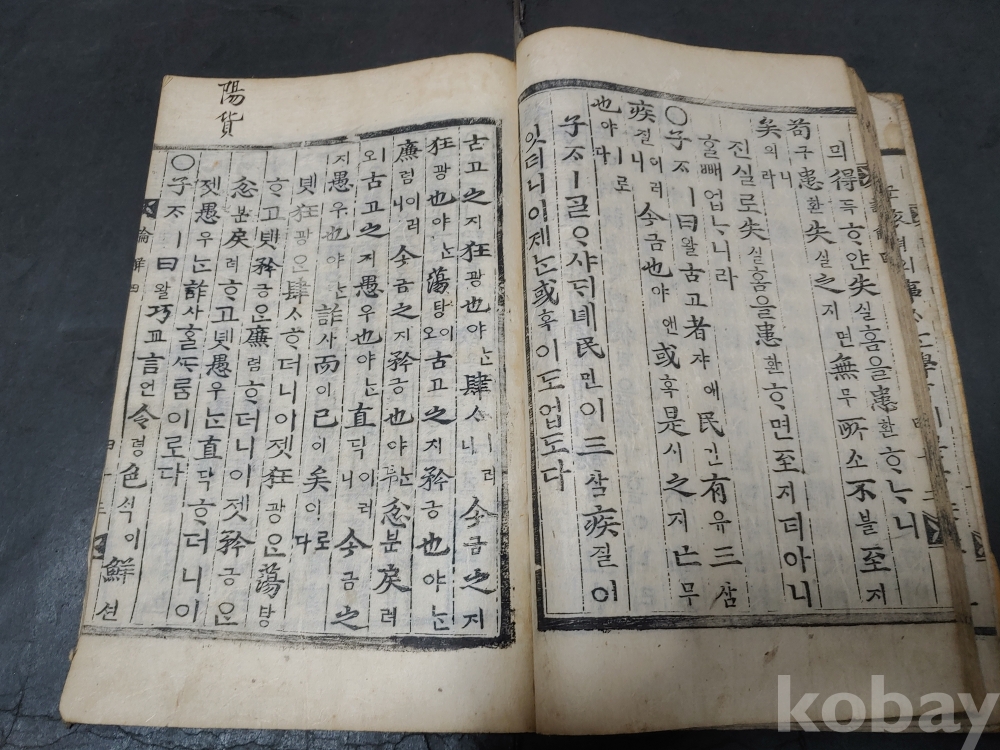 믜得득ᄒᆞ얀失실홈을患환ᄒᆞᄂᆞ니
苟구患환失실之지면無무所소不블至지
矣의니라
진실로失실홈을患환ᄒᆞ면至지티아니
홀빼업ᄂᆞ니라
○子ᄌᆞㅣ曰왈古고者쟈애民민有유三삼
疾질이러니今금也야앤或혹是시之지亡무
也야ㅣ로다
子ᄌᆞㅣᄀᆞᆯᄋᆞ샤ᄃᆡ녜民민이三삼疾질이
잇더니이제ᄂᆞᆫ或혹이도업도다
陽貨
古고之지狂광也야ᄂᆞᆫ肆ᄉᆞㅣ러니今금之지
狂광也야ᄂᆞᆫ蕩탕이오古고之지矜긍也야ᄂᆞᆫ
廉렴이러니今금之지矜긍也야ᄂᆞᆫ忿분戾려
ㅣ오古고之지愚우也야ᄂᆞᆫ直딕이러니今금之
지愚우也야ᄂᆞᆫ詐사而이已이矣의로다
녯狂광은肆ᄉᆞᄒᆞ더니이젯狂광은蕩탕
ᄒᆞ고녯矜긍은廉렴ᄒᆞ더니이젯矜긍은
忿분戾려ᄒᆞ고녯愚우ᄂᆞᆫ直딕ᄒᆞ더니이
젯愚우ᄂᆞᆫ詐사홀ᄯᆞᄅᆞᆷ이로다
○子ᄌᆞㅣ曰왈巧교言언令령色ᄉᆡᆨ이鮮션
kobay